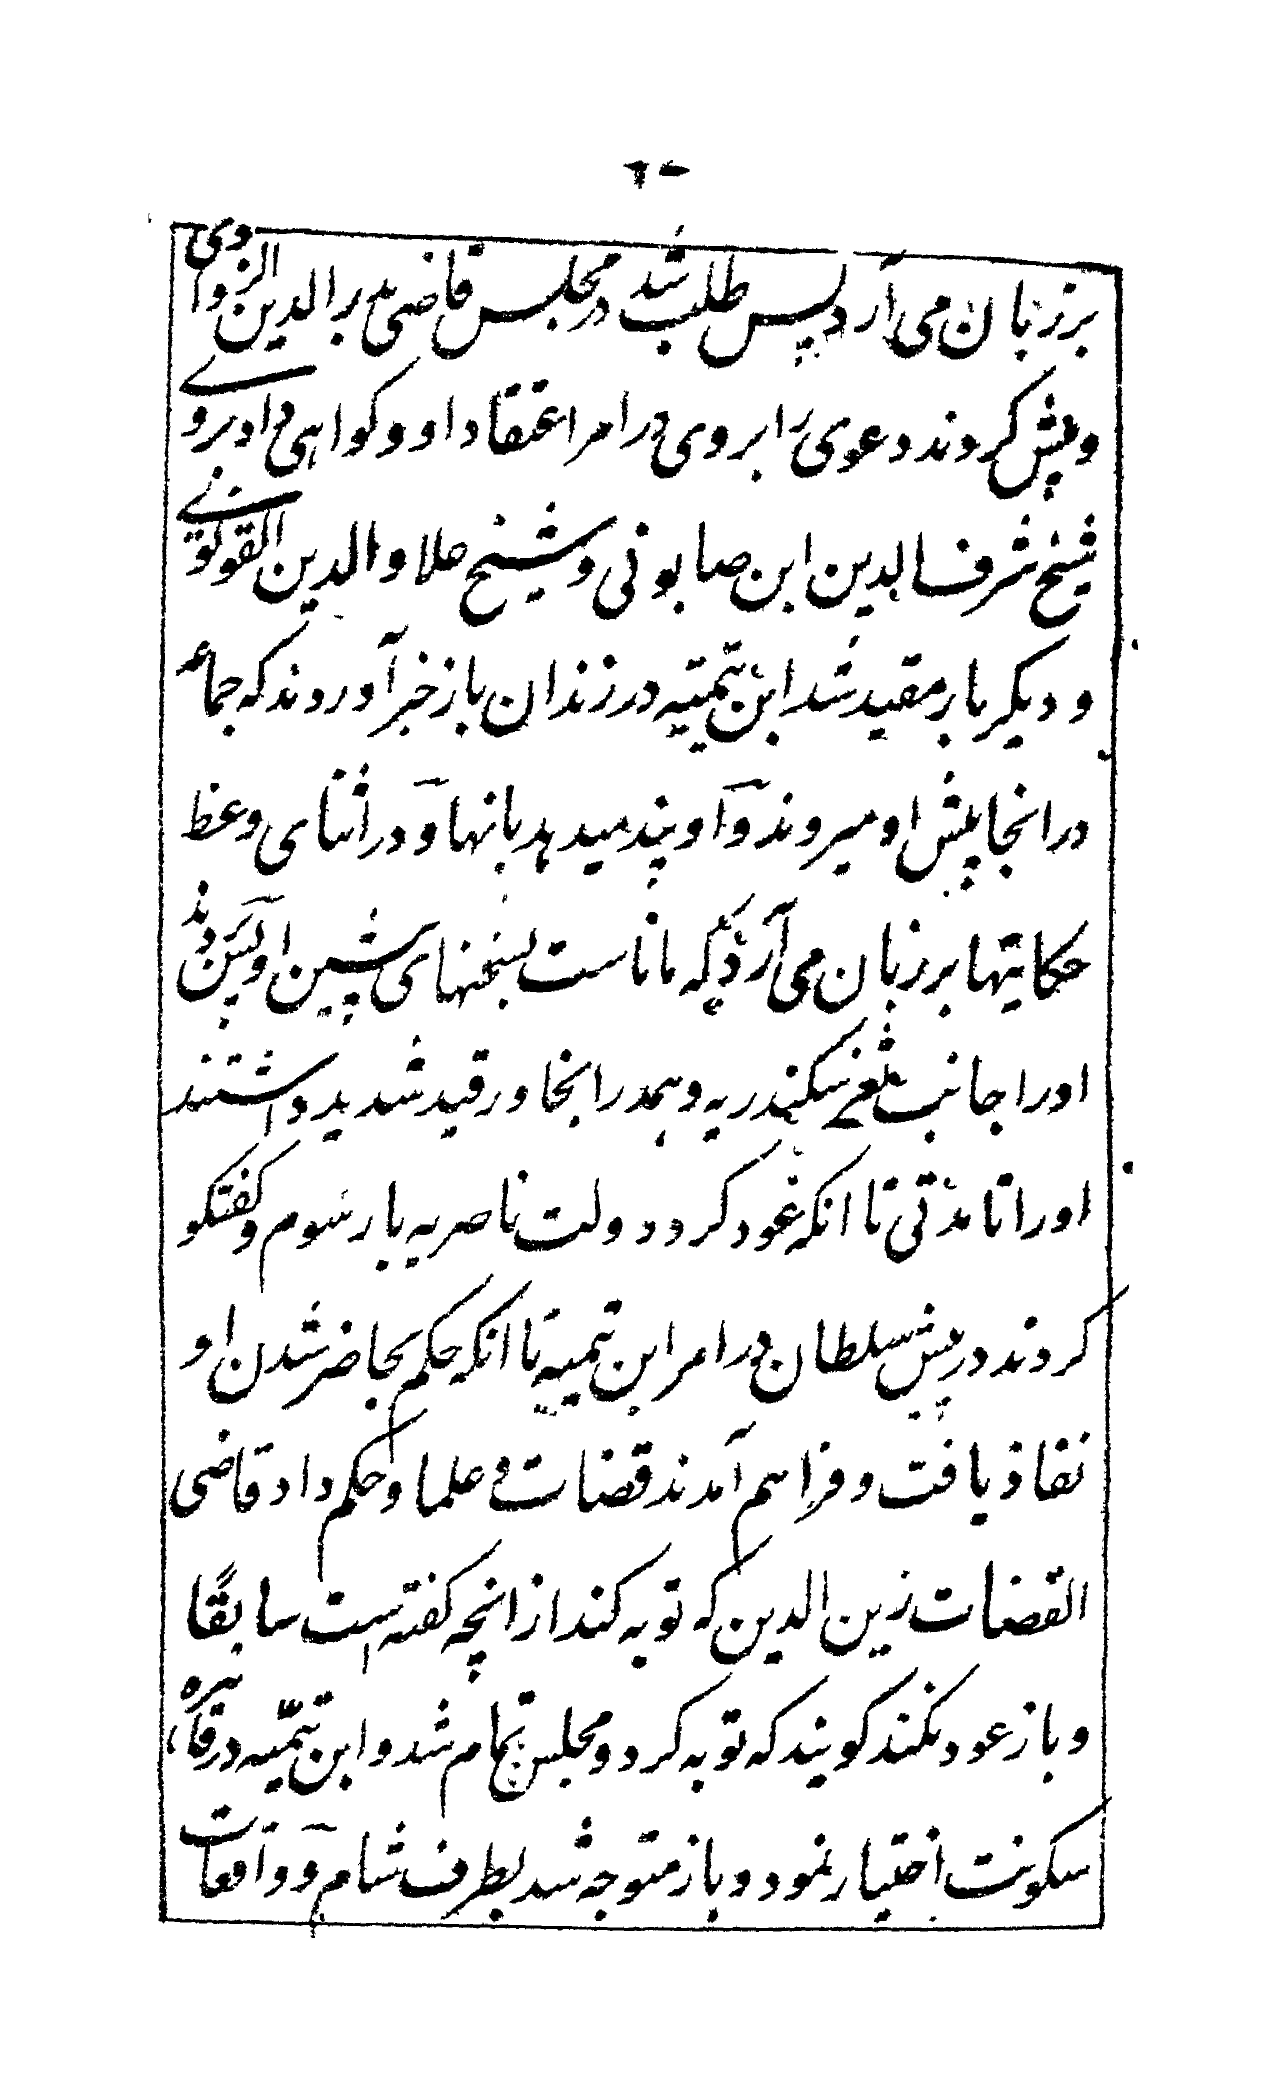 بر زبان می آرد پس طلب شد در مجلس قاضی بدر الدین الزواوی
و پیش کردند دعوی را بروی در امر اعتقاد او و کواهی داد بروے
شیخ شرف الدین ابن صابونی و شیخ علاو الدین القونوے
و دیکر بار مقید شد ابن تیمیه در زندان باز خبر آوردند که جماعه
در انجا پیش او میروند و او پند میدهد بانها و در اثنای وعظ
حکایتها بر زبان می آرد که مانا ست بسخنهای پیشین او پس بردند
اورا جانب ثغر سکندریه و همدر انجا در قید شدید داشتند
اورا تا مدتی تا انکه عود کرد دولت ناصریه بار سوم و کفتکو
کردند در پیش سلطان در امر ابن تیمیه تا انکه حکم بحاضر شدن او
نفاذ یافت و فراهم آمدند قضات و علما و حکم داد قاضی
القضات زین الدین که توبه کند از انچه کفته است سابقًا
و باز عود نکند کویند که توبه کرد و مجلس تمام شد و ابن تیمّیه در قاهره
سکونت اختیار نمود و باز متوجه شد بطرف شام و واقعات